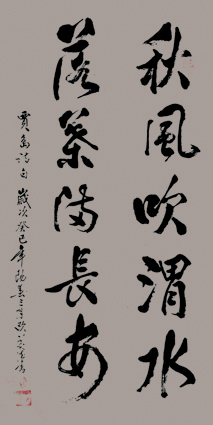 秋風吹渭水
落葉満長安
賈島詩句 歲次癸巳年